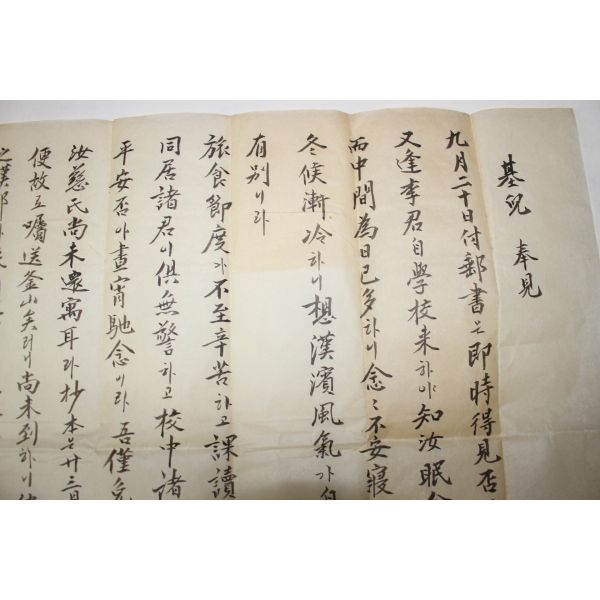 基児 奉見
九月二十日付郵書는即時得見否
又逢李君自學校来하야知汝眠
而中間為日已多하니念々不安寢
冬候漸冷하니想漢濱風氣가
有別이라
旅食節度가不至辛苦하고課讀
同居諸君이俱無警하고校中諸
平安否아晝宵馳念이라吾僅免
汝慈氏尚未還寓耳라抄本는廿三日
便故로囑送釜山矣러니尚未到하니